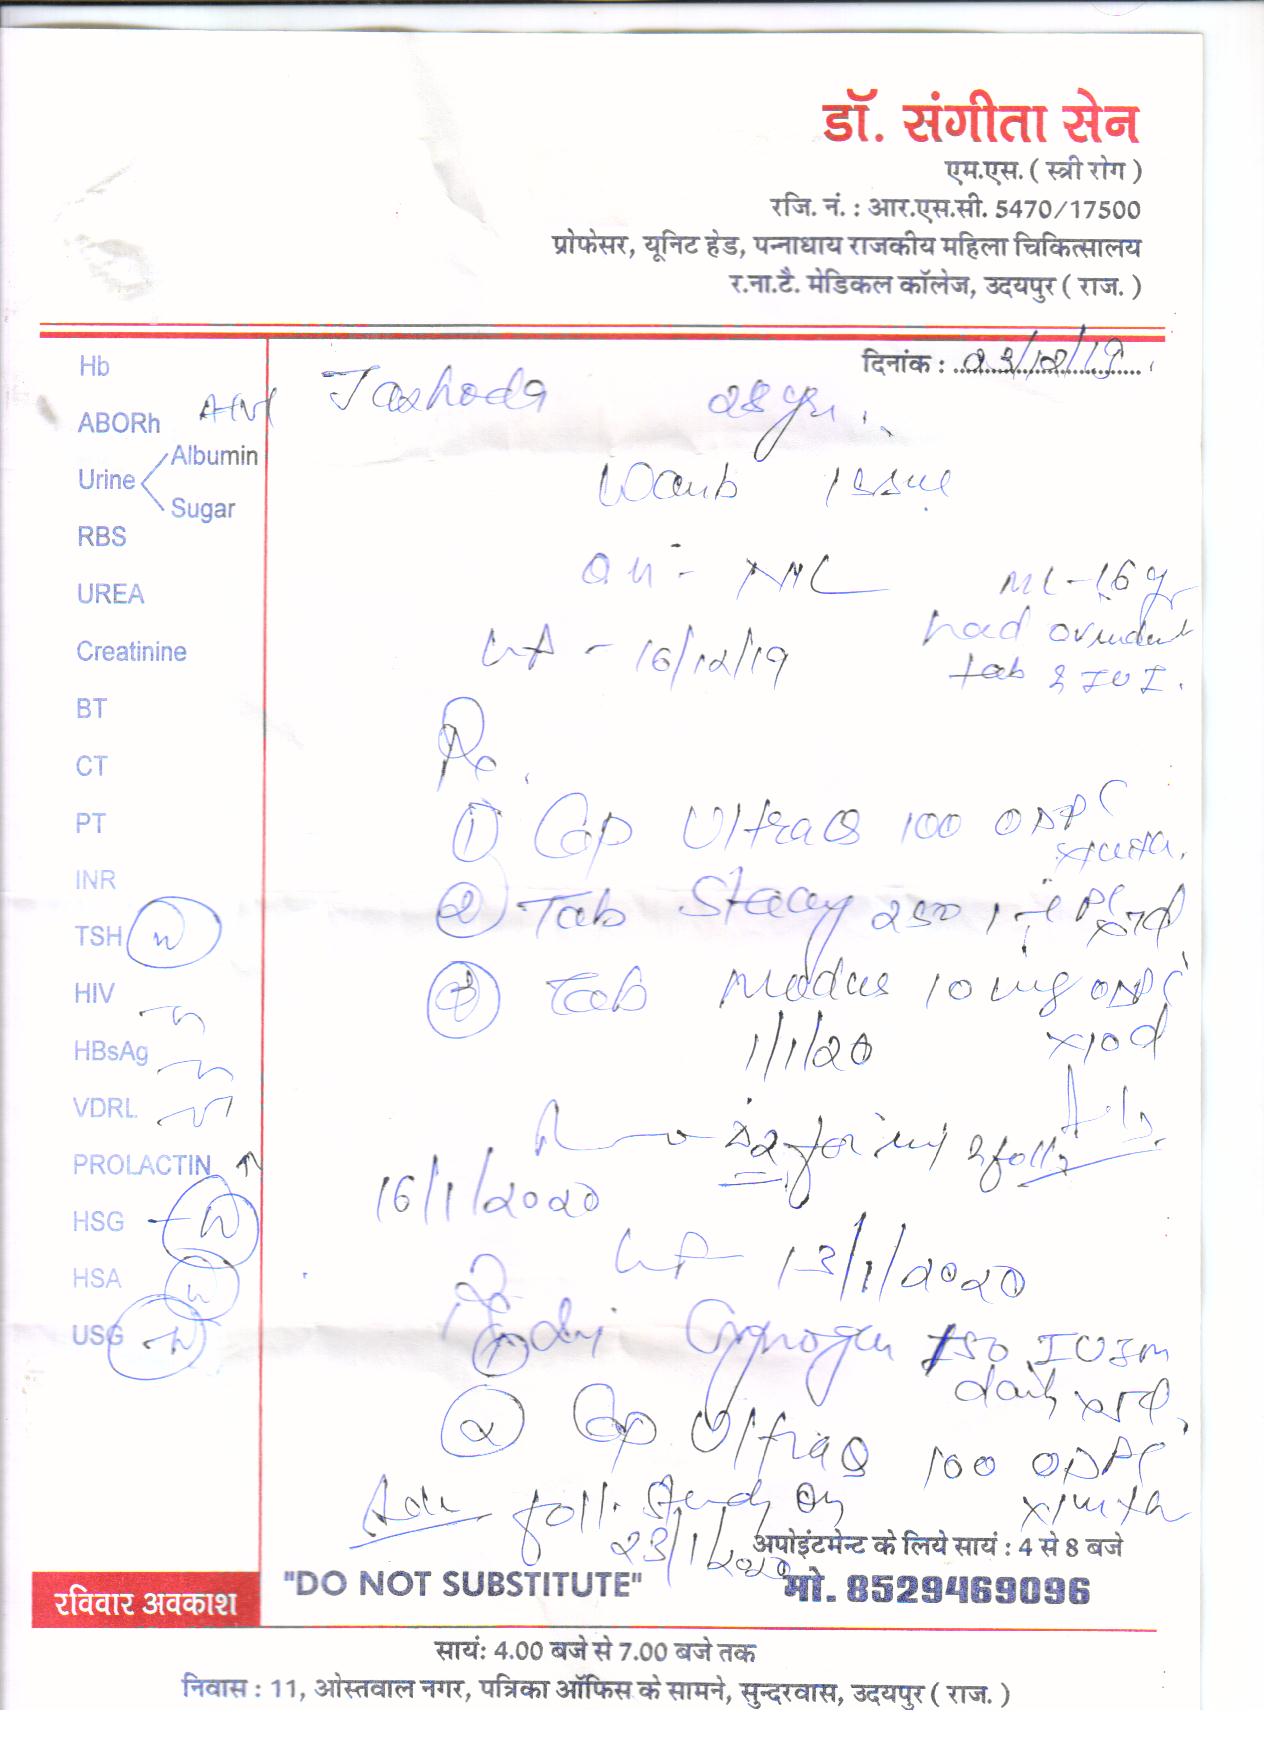 डॉ. संगीता सेन
एम.एस. ( स्त्री रोग )
रजि. नं. : आर.एस.सी. 5470/17500
प्रोफेसर, यूनिट हेड, पन्नाधाय राजकीय महिला चिकित्सालय
र.ना.टै. मेडिकल कॉलेज, उदयपुर ( राज. )
दिनांक : 23/12/19
Hb
ABORh
Urine
Albumin
Sugar
RBS
UREA
Creatinine
BT
CT
PT
INR
TSH N
HIV
HBsAg
VDRL
PROLACTIN ↑
HSG N
HSA N
USG N
Jashoda 28 yr.
Want issue
ML - 1.6 yr
had
tab & IUI.
- 16/12/19
Rx
① Cap Ultra Q 100 OD PC
② Tab 250
③ Tab 10 mg OD PC
1/1/20 x10d
16/1/2020
- 13/1/2020
Rx
① Inj 150 IU Im
daily x5d
② Cap Ultra Q 100 OD PC
Adv foll. Study on
23/1/2020
अपोइंटमेन्ट के लिये सायं : 4 से 8 बजे
"DO NOT SUBSTITUTE"
मो. 8529469096
रविवार अवकाश
सायं: 4.00 बजे से 7.00 बजे तक
निवास : 11, ओस्तवाल नगर, पत्रिका ऑफिस के सामने, सुन्दरवास, उदयपुर ( राज. )